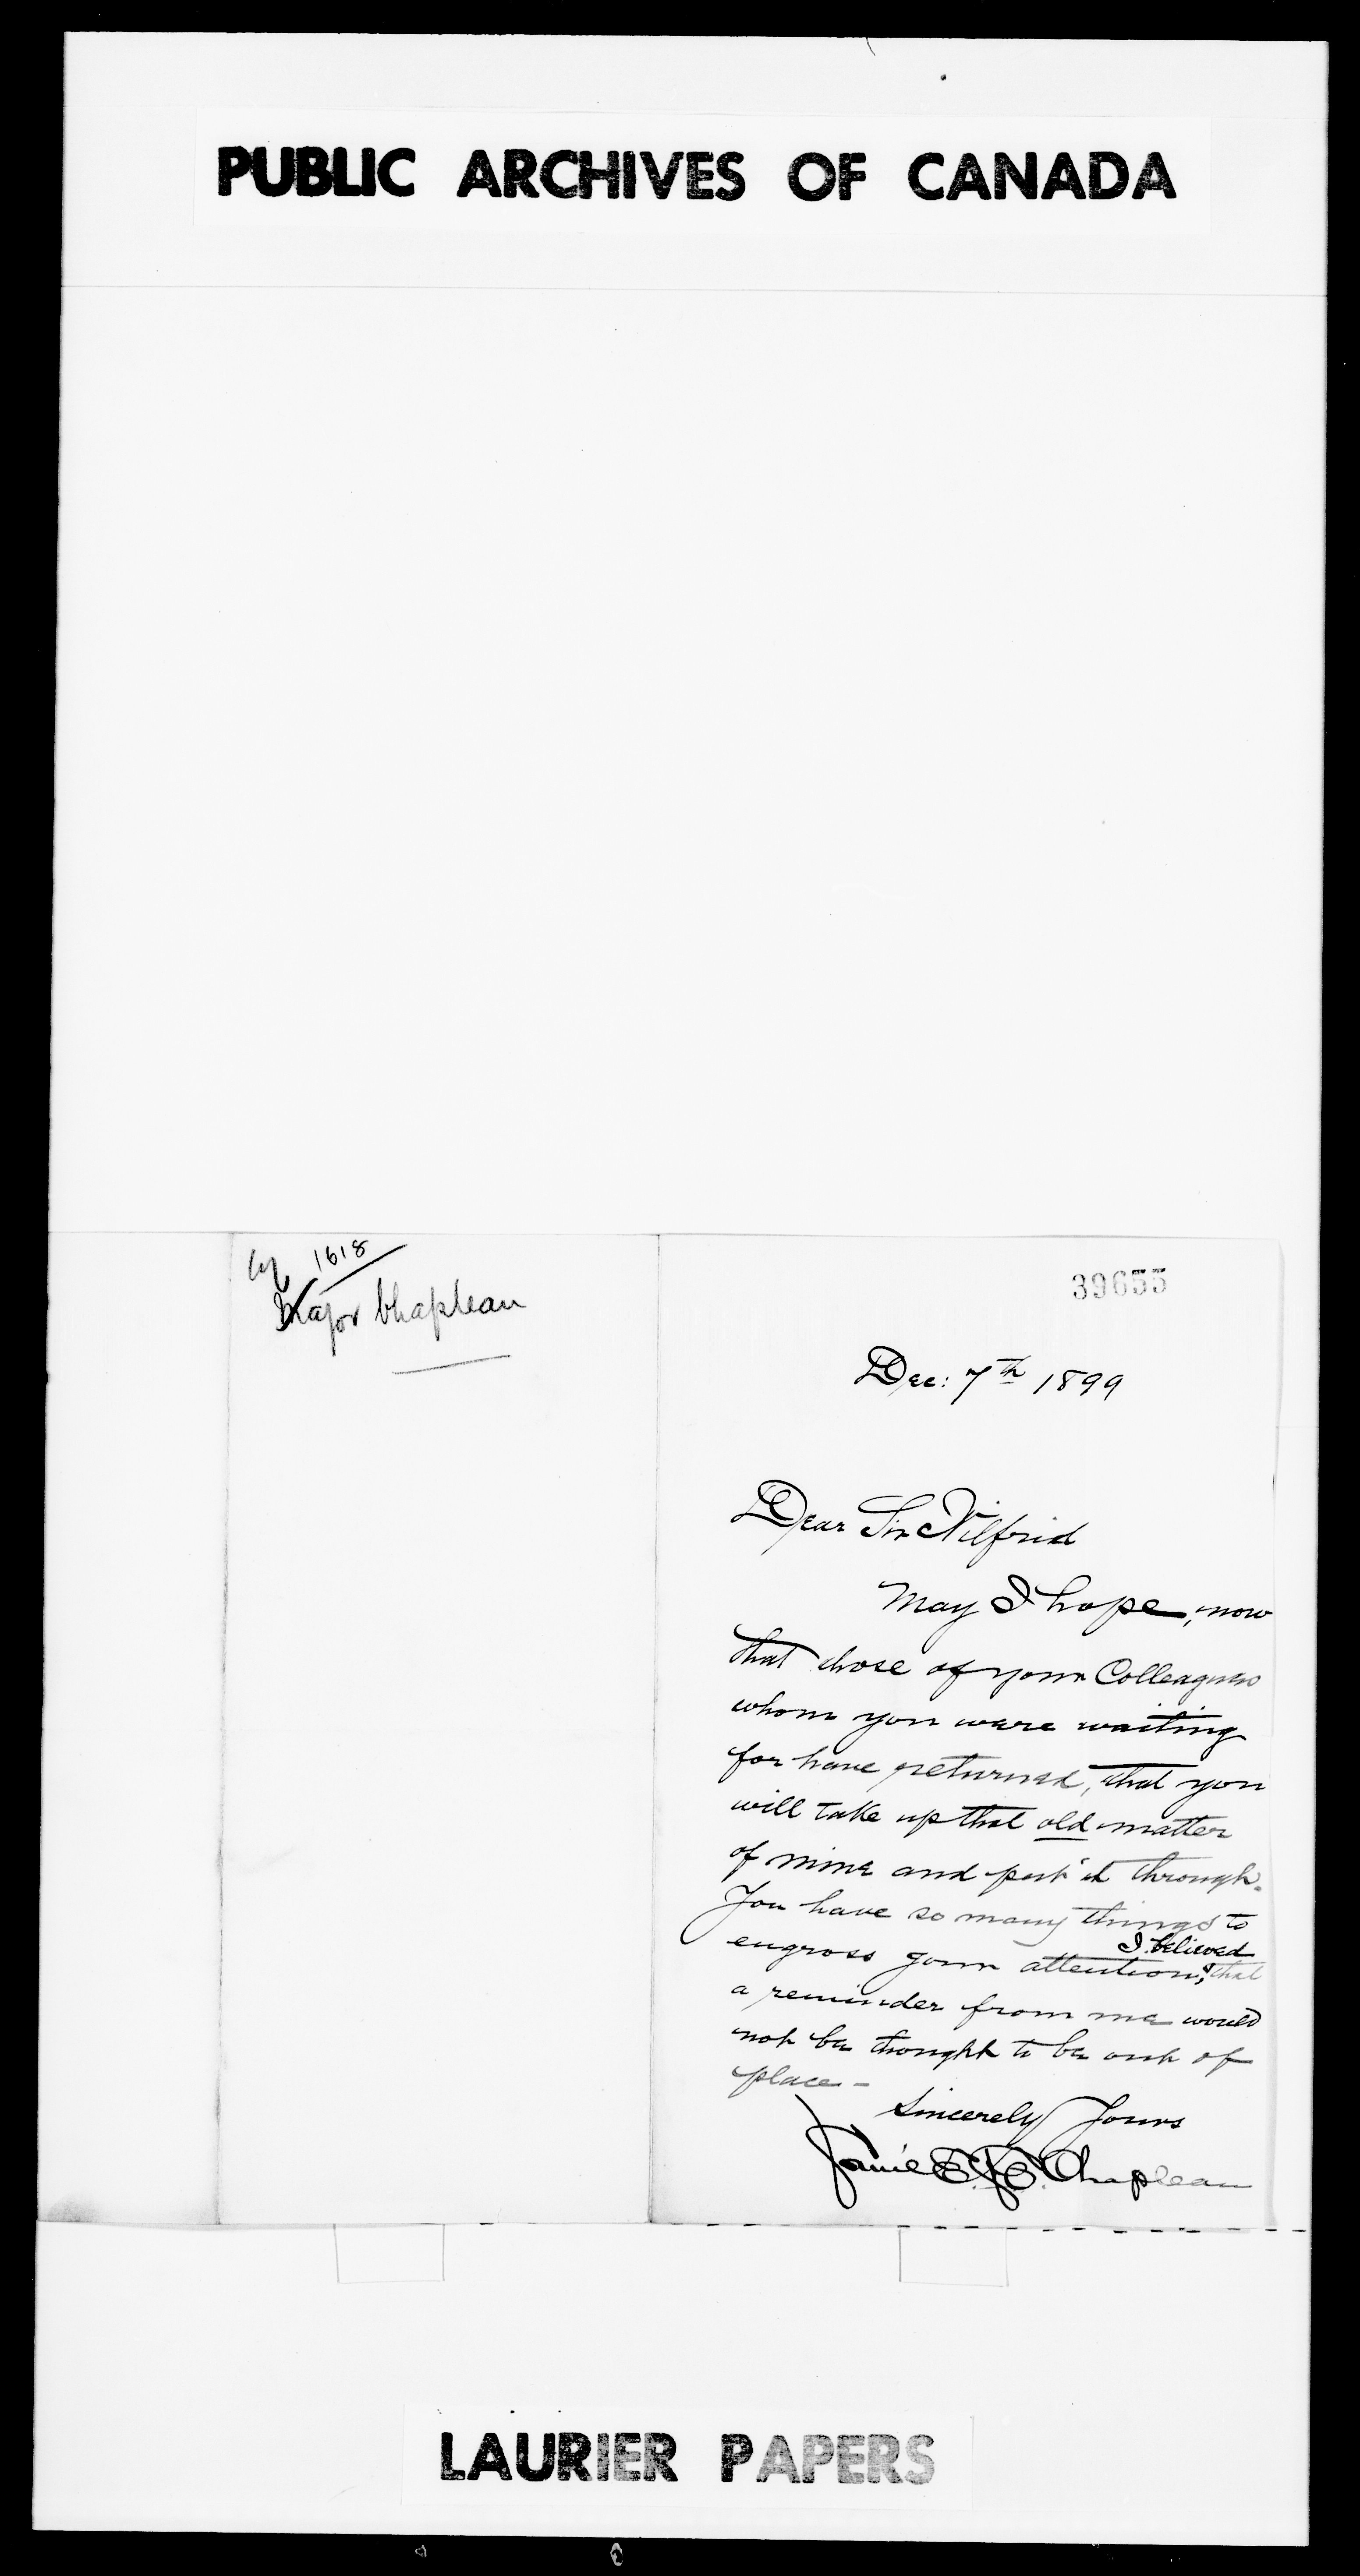 PUBLIC ARCHIVES OF CANADA
1618
Major Chapleau
39655
Dec: 7th 1899
Dear Sir Wilfrid
May I hope, now
that those of your Colleagues
whom you were waiting
for have returned, that you
will take up that old matter
of mine and put it through.
You have so many things to
engross your attention, I believed that
a reminder from me would
not be thought to be out of
place -
Sincerely Yours
Chapleau
LAURIER PAPERS